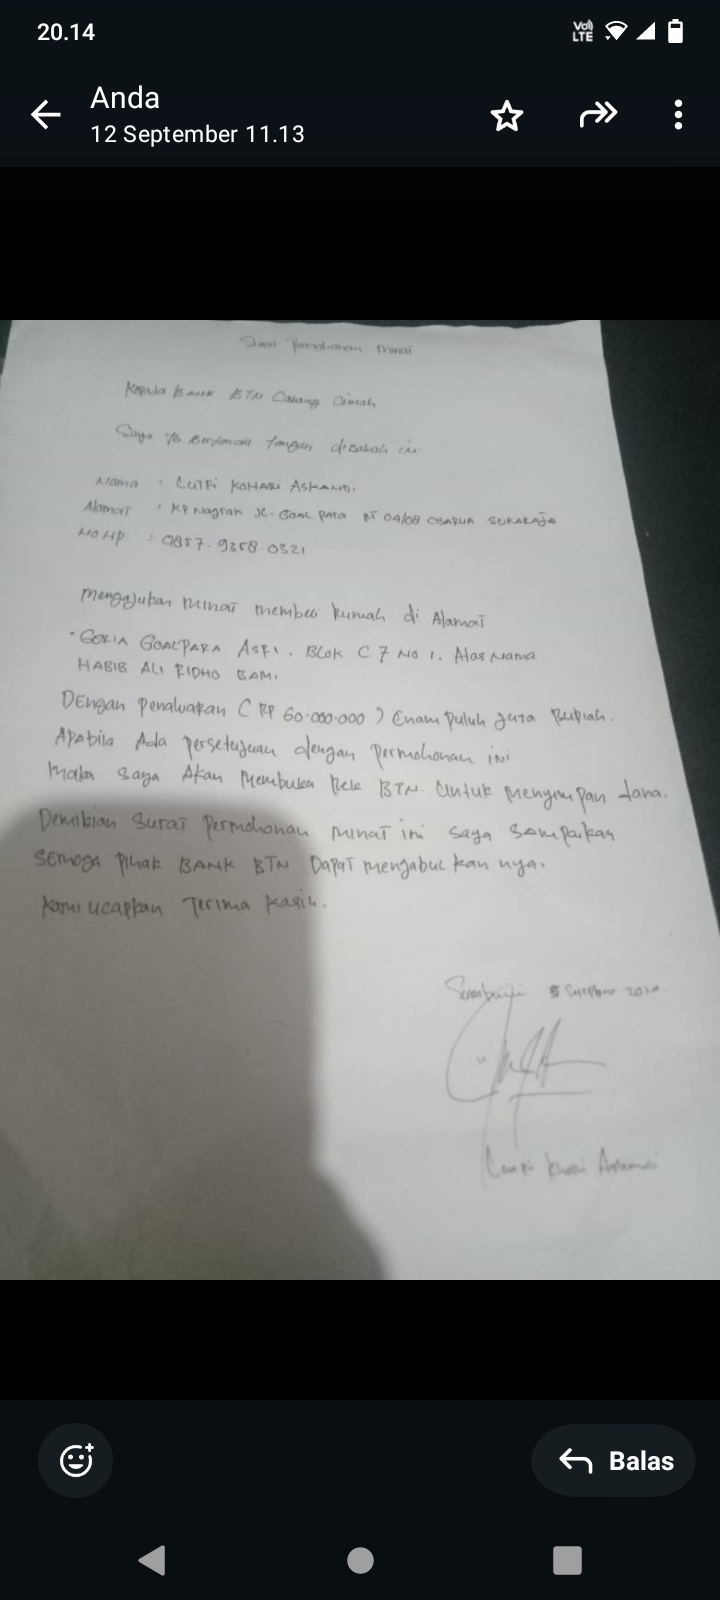 20.14
Vo)) LTE
Anda
12 September 11.13
Surat Permohonan Minat
Kepada BANK BTN Cabang Cimahi
Saya Yg Bertanda tangan dibawah ini
Nama : LUTFI KOHARI ASKANDI.
Alamat : KP Nagrak JL. GOAL PARA RT 04/08 CISARUA SUKARAJA
NO HP : 0857. 9358 0321
Mengajukan Minat membeli Rumah di Alamat
GORIA GOALPARA ASRI. BLOK C 7 NO 1. Atas Nama
HABIB ALI RIDHO BAM.
DEngan Penawaran ( RP 60.000.000 ) Enam puluh Juta Rupiah.
Apabila Ada persetujuan dengan permohonan ini
Maka Saya Akan Membuka Rek BTN. Untuk Menyimpan dana.
Demikian Surat Permohonan Minat ini saya Sampaikan
Semoga Pihak BANK BTN Dapat Mengabul kan nya.
Kami ucapkan Terima Kasih.
5
Balas